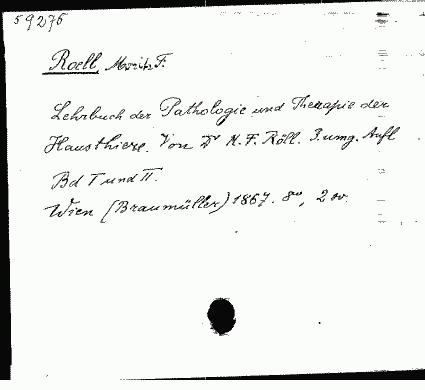 59276
Roell, Moritz F.
Lehrbuch der Pathologie und Therapie der
Hausthiere. Von Dr M. F. Röll. 3. umg. Aufl
Bd I und II.
Wien (Braumüller) 1867. 8°, 2